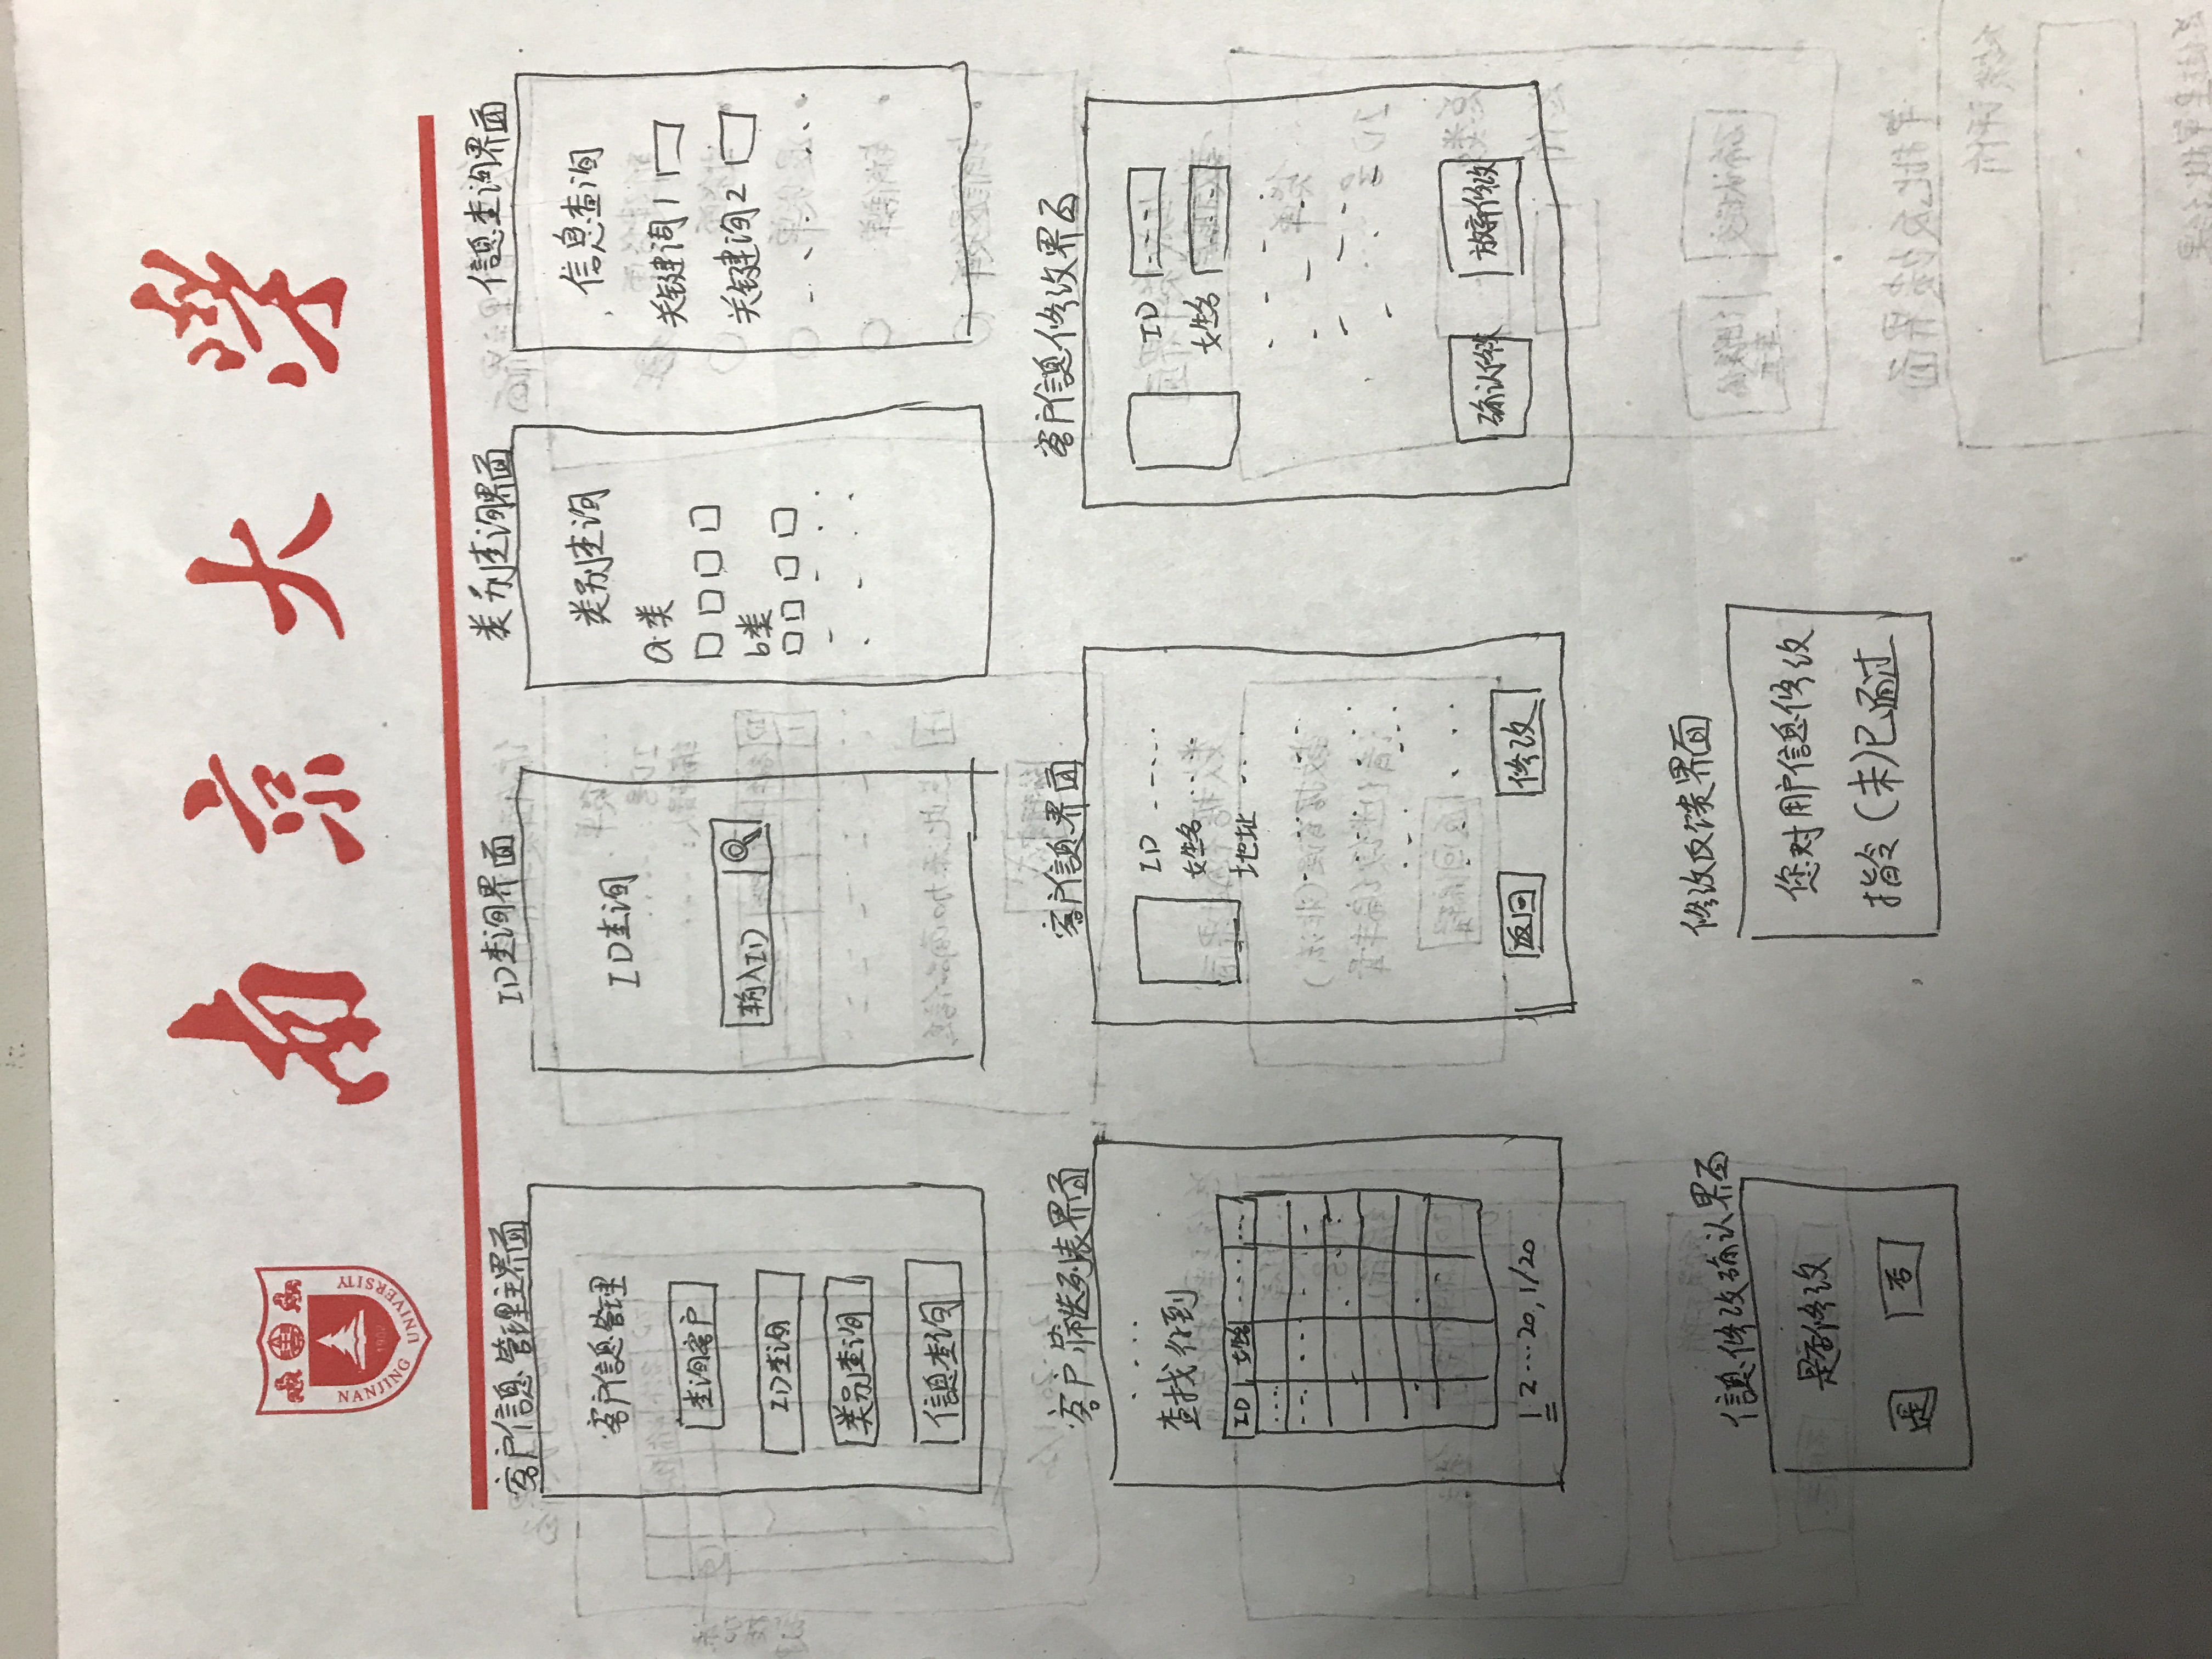 南京大學
NANJING UNIVERSITY
1902
客户信息管理主界面
客户信息管理
查询客户
ID查询
类别查询
信息查询
ID查询界面
ID查询
输入ID
类别查询界面
类别查询
a类
b类
信息查询界面
信息查询
关键词1
关键词2
客户筛选列表界面
....
查找得到
ID 姓名 ... ...
1 2 ... 20, 1/20
客户信息界面
ID .....
姓名 ....
地址 ...
返回 修改
客户信息修改界面
ID ---
姓名 ...
确认修改 放弃修改
信息修改确认界面
是否修改
是 否
修改反馈界面
您对用户信息修改
指令(未)已通过